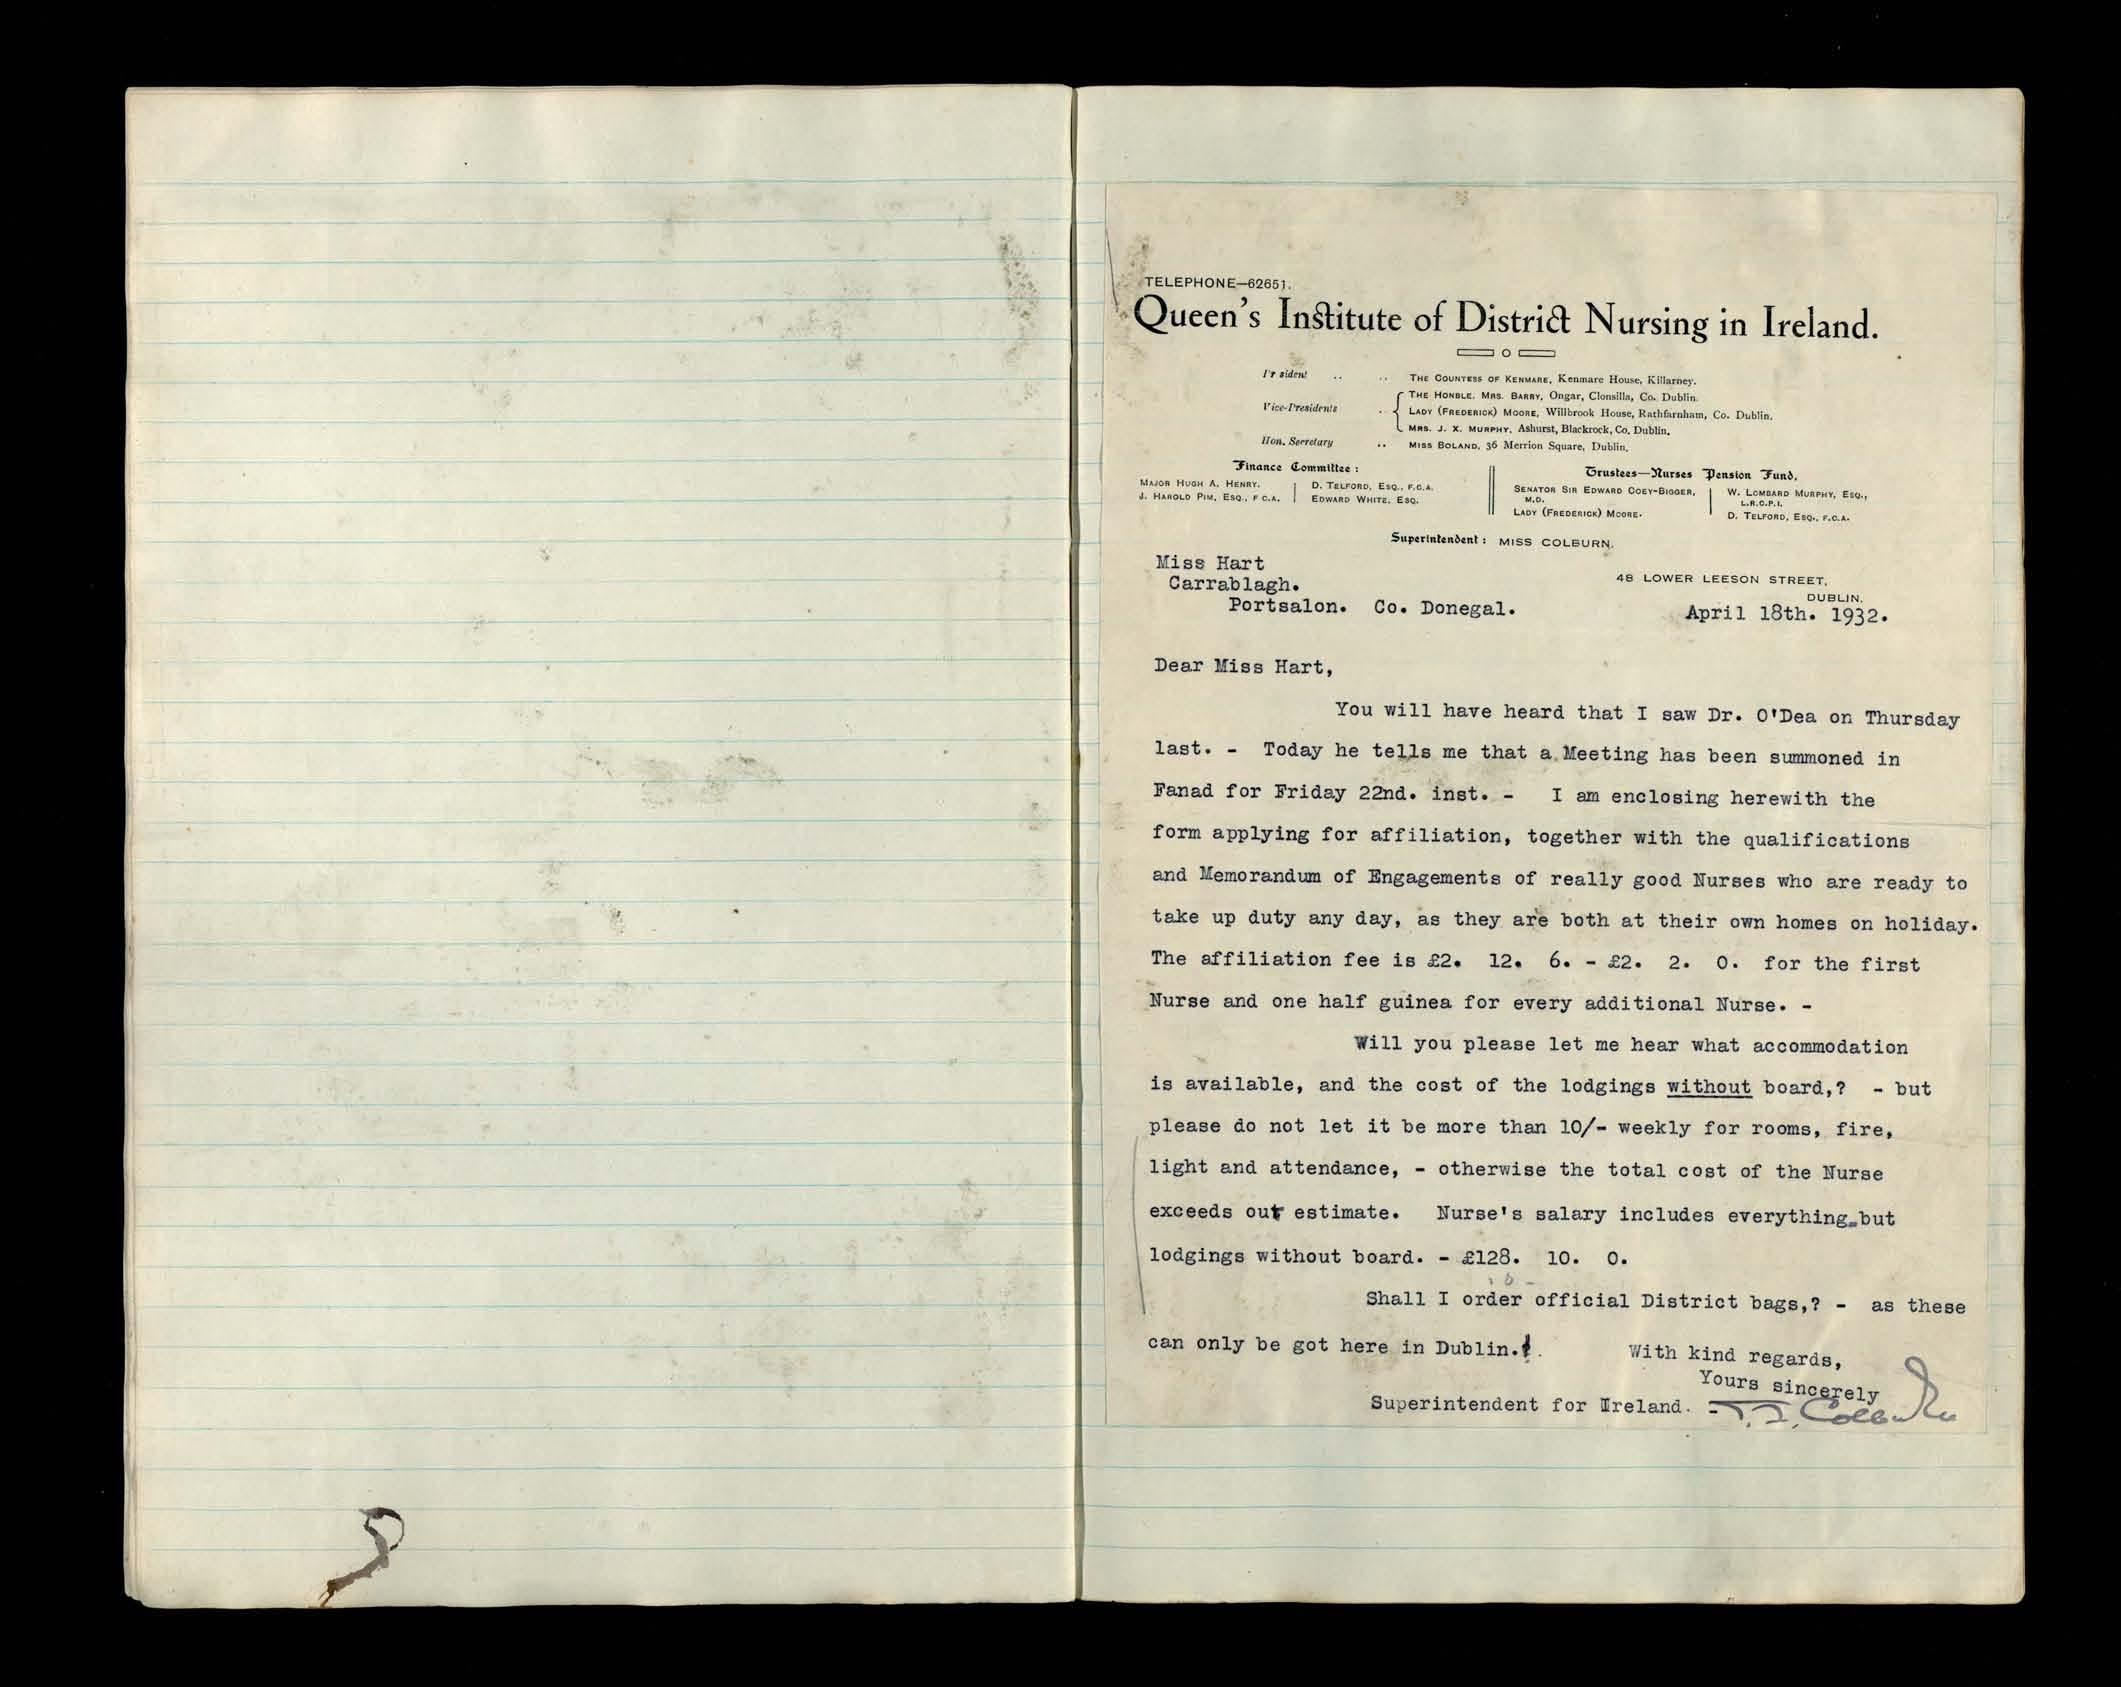 TELEPHONE—62651.
Queen's Institute of District Nursing in Ireland.
Pr sident .. .. THE COUNTESS OF KENMARE, Kenmare House, Killarney.
THE HONBLE. MRS. BARRY, Ongar, Clonsilla, Co. Dublin.
Vice-Presidents .. LADY (FREDERICK) MOORE, Willbrook House, Rathfarnham, Co. Dublin.
MRS. J. X. MURPHY, Ashurst, Blackrock, Co. Dublin.
Hon. Secretary .. MISS BOLAND, 36 Merrion Square, Dublin.
Finance Committee :
MAJOR HUGH A. HENRY. D. TELFORD, ESQ., F.C.A.
J. HAROLD PIM, ESQ., F C.A. EDWARD WHITE, ESQ.
Trustees—Nurses Pension Fund,
SENATOR SIR EDWARD COEY-BIGGER, W. LOMBARD MURPHY, ESQ.,
M.D. L.R.C.P.I.
LADY (FREDERICK) MOORE. D. TELFORD, ESQ., F.C.A.
Superintendent : MISS COLBURN.
Miss Hart
Carrablagh.
Portsalon. Co. Donegal.
48 LOWER LEESON STREET,
DUBLIN.
April 18th. 1932.
Dear Miss Hart,
You will have heard that I saw Dr. O'Dea on Thursday
last. - Today he tells me that a Meeting has been summoned in
Fanad for Friday 22nd. inst. - I am enclosing herewith the
form applying for affiliation, together with the qualifications
and Memorandum of Engagements of really good Nurses who are ready to
take up duty any day, as they are both at their own homes on holiday.
The affiliation fee is £2. 12. 6. - £2. 2. 0. for the first
Nurse and one half guinea for every additional Nurse. -
Will you please let me hear what accommodation
is available, and the cost of the lodgings without board,? - but
please do not let it be more than 10/- weekly for rooms, fire,
light and attendance, - otherwise the total cost of the Nurse
exceeds our estimate. Nurse's salary includes everything-but
lodgings without board. - £128. 10. 0.
Shall I order official District bags,? - as these
can only be got here in Dublin.
With kind regards,
Yours sincerely
Superintendent for Ireland. - Colburn